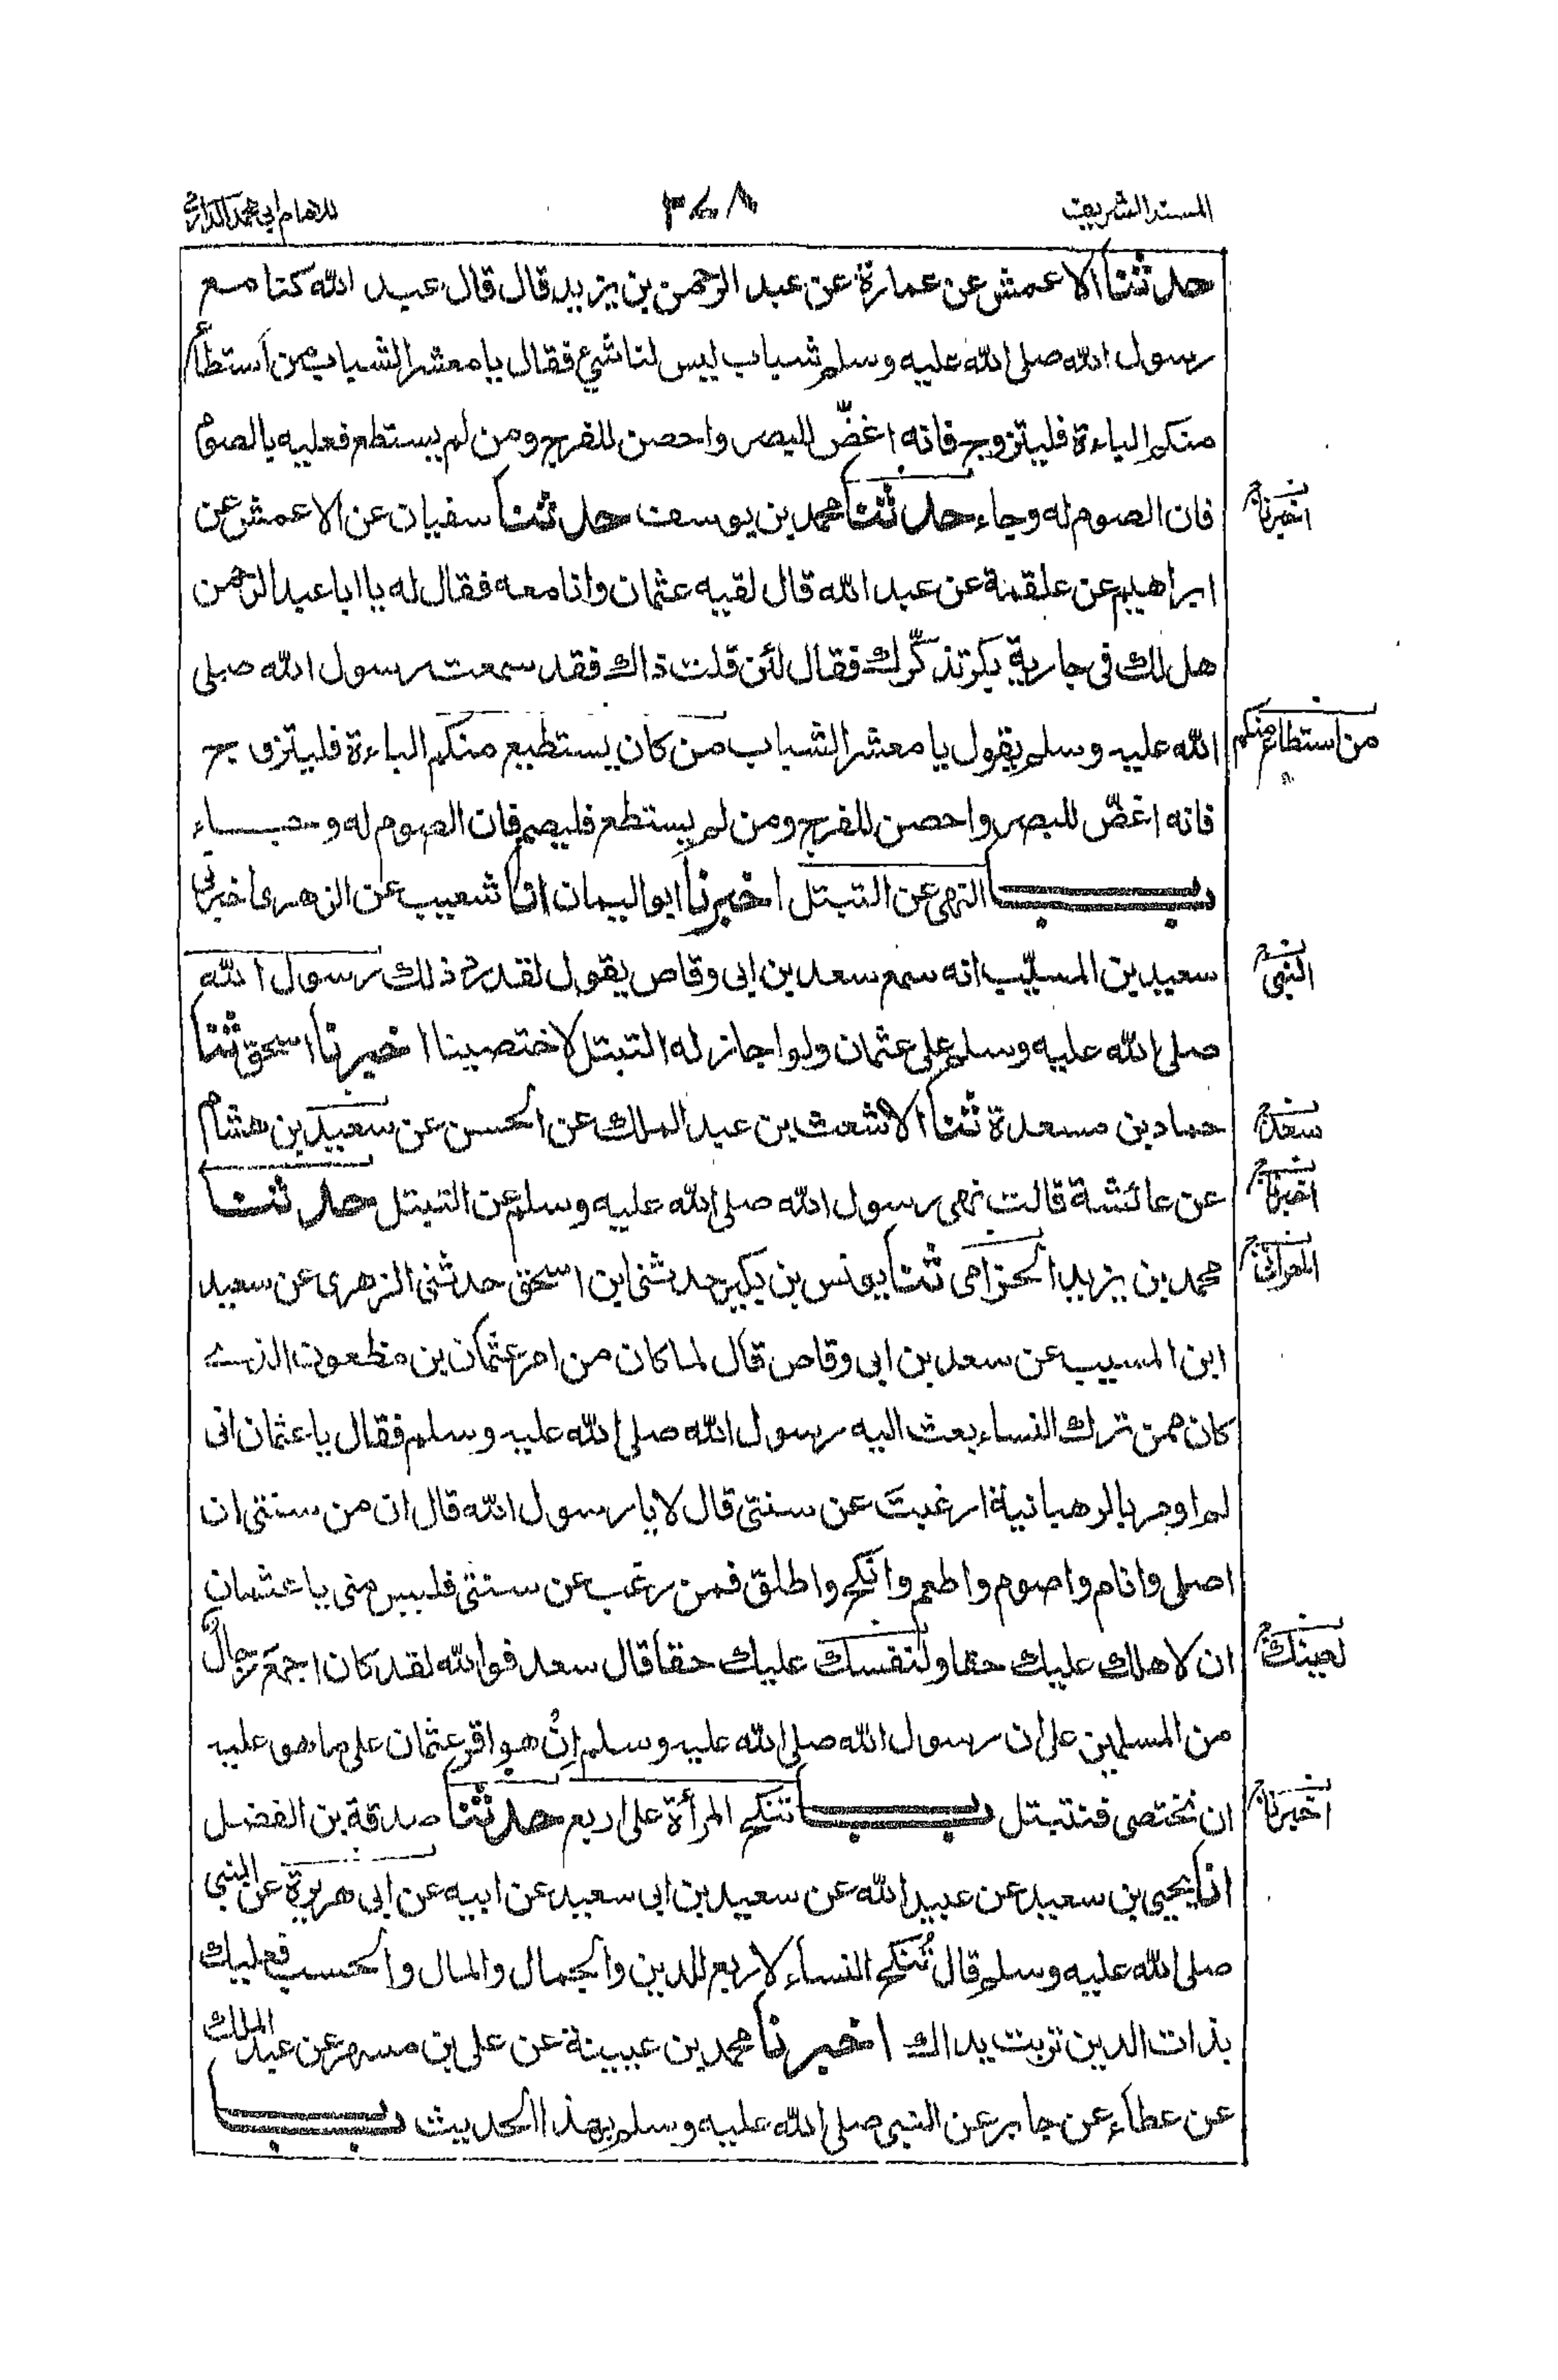 المسند الشريف
٣٤٨
للامام ابي محمد الدارمي
حدثنا الاعمش عن عمارة عن عبد الرحمن بن يزيد قال قال عبد الله كنا مع
رسول الله صلى الله عليه وسلم شباب ليس لنا شيء فقال يا معشر الشباب من استطاع
منكم الباءة فليتزوج فانه اغضّ للبصر واحصن للفرج ومن لم يستطع فعليه بالصوم
فان الصوم له وجاء حدثنا محمد بن يوسف حدثنا سفيان عن الاعمش عن
اخبرنا
ابراهيم عن علقمة عن عبد الله قال لقيه عثمان وانا معه فقال له يا ابا عبد الرحمن
هل لك فى جارية بكر تذكّرك فقال لئن قلت ذاك فقد سمعت رسول الله صلى
الله عليه وسلم يقول يا معشر الشباب من كان يستطيع منكم الباءة فليتزوج
من استطاع منكم
فانه اغضّ للبصر واحصن للفرج ومن لم يستطع فليصم فان الصوم له وجاء
باب النهى عن التبتل اخبرنا ابو اليمان انا شعيب عن الزهرى اخبرنى
سعيد بن المسيّب انه سمع سعد بن ابى وقاص يقول لقد رد ذلك رسول الله
النبى
صلى الله عليه وسلم على عثمان ولو اجاز له التبتل لاختصينا اخبرنا اسحٰق ثنا
حماد بن مسعدة ثنا الاشعث بن عبد الملك عن الحسن عن سعيد بن هشام
سعد
عن عائشة قالت نهى رسول الله صلى الله عليه وسلم عن التبتل حدثنا
اخبرنا
محمد بن يزيد الحزامى ثنا يونس بن بكير حدثنى ابن اسحٰق حدثنى الزهرى عن سعيد
ابن المسيب عن سعد بن ابى وقاص قال لما كان من امر عثمان بن مظعون الذى
كان ممن ترك النساء بعث اليه رسول الله صلى الله عليه وسلم فقال يا عثمان انى
لم اومر بالرهبانية ارغبتَ عن سنتى قال لا يا رسول الله قال ان من سنتى ان
اصلى وانام واصوم واطعم وانكح واطلق فمن رغب عن سنتى فليس منى يا عثمان
ان لاهلك عليك حقا ولنفسك عليك حقا قال سعد فوالله لقد كان اجمعَ رجالٌ
لعينك
من المسلمين على ان رسول الله صلى الله عليه وسلم اِنْ هو اقر عثمان على ما هو عليه
ان نختصى فنتبتل باب تنكح المرأة على اربع حدثنا صدقة بن الفضل
اخبرنا
انا يحيى بن سعيد عن عبيد الله عن سعيد بن ابى سعيد عن ابيه عن ابى هريرة عن النبي
صلى الله عليه وسلم قال تُنكح النساء لاربع للدين والجمال والمال والحسب فعليك
بذات الدين تربت يداك اخبرنا محمد بن عيينة عن على بن مسهر عن عبد الملك
عن عطاء عن جابر عن النبى صلى الله عليه وسلم بهذا الحديث باب